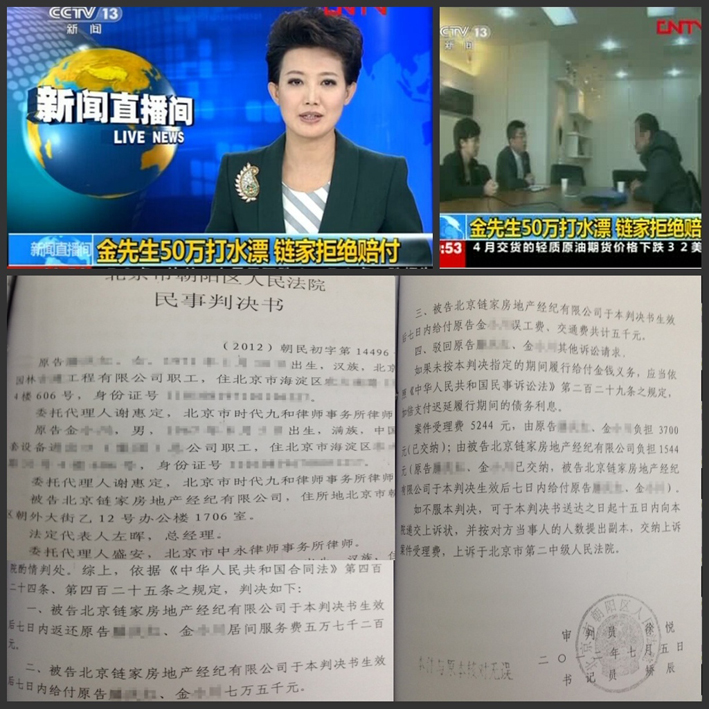 CCTV 13
新闻
CNTV
新闻直播间
LIVE NEWS
新闻直播间
金先生50万打水漂 链家拒绝赔付
CCTV 13
新闻
CNTV
金先生50万打水漂 链家拒绝赔
:53
4月交货的轻质原油期货价格下跌32美
北京市朝阳区人民法院
民事判决书
(2012)朝民初字第14496
原告
出生，汉族，北京
园林
工程有限公司职工，住北京市海淀区
4楼606号，身份证号
委托代理人谢惠定，北京市时代九和律师事务所律师
原告金
，男，
出生，满族，中国
套设备进
公司职工，住北京市海淀区
号，身份证号
委托代理人谢惠定，北京市时代九和律师事务所律师
被告北京链家房地产经纪有限公司，住所地北京市朝
区朝外大街乙12号办公楼1706室。
法定代表人左晖，总经理。
委托代理人盛安，北京市中永律师事务所律师。
院酌情判处。综上，依据《中华人民共和国合同法》第四百
二十四条、第四百二十五条之规定，判决如下：
一、被告北京链家房地产经纪有限公司于本判决书生效
后七日内返还原告
、金
居间服务费五万七千二百
元。
二、被告北京链家房地产经纪有限公司于本判决书生效
后七日内给付原告
、金
七万五千元。
三、被告北京链家房地产经纪有限公司于本判决书生效
后七日内给付原告金
误工费、交通费共计五千元。
四、驳回原告
、金
其他诉讼请求。
如果未按本判决指定的期间履行给付金钱义务，应当依
照《中华人民共和国民事诉讼法》第二百二十九条之规定，
加倍支付迟延履行期间的债务利息。
案件受理费5244元，由原告
、金
负担3700
元(已交纳)；由被告北京链家房地产经纪有限公司负担1544
元(原告
、金
已交纳，被告北京链家房地产经纪
有限公司于本判决生效后七日内给付原告
、金
)。
如不服本判决，可于本判决书送达之日起十五日内向本
院递交上诉状，并按对方当事人的人数提出副本，交纳上诉
案件受理费，上诉于北京市第二中级人民法院。
审判员 徐悦
二〇一二年七月五日
书记员
辰
本件与原本核对无误